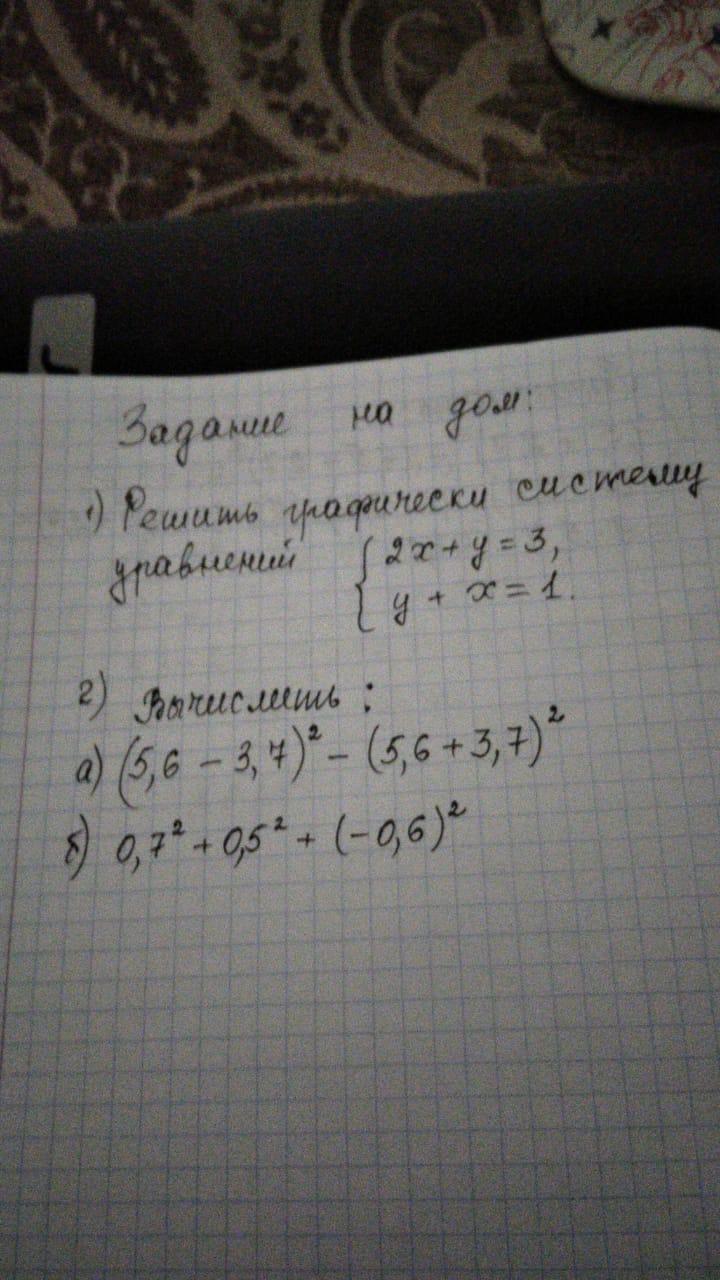 Задание на дом:
1) Решить графически систему
уравнений { 2x + y = 3,
y + x = 1.
2) Вычислить:
а) (5,6 - 3,7)² - (5,6 + 3,7)²
б) 0,7² + 0,5² + (-0,6)²